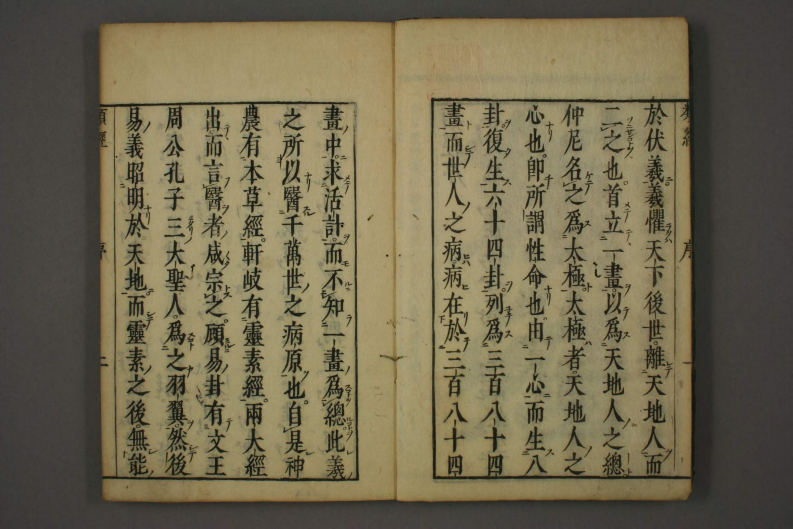 於伏羲羲懼天下後世離天地人而
二之也首立一畫以為天地人之總
仲尼名之為太極太極者天地人之
心也卽所謂性命也由一心而生八
卦復生六十四卦列為三百八十四
畫而世人之病病在於三百八十四
畫中求活計而不知一畫為總此羲
之所以醫千萬世之病原也自是神
農有本草經軒岐有靈素經兩大經
出而言醫者咸宗之顧易卦有文王
周公孔子三大聖人為之羽翼然後
易義昭明於天地而靈素之後無能
類經
序
二